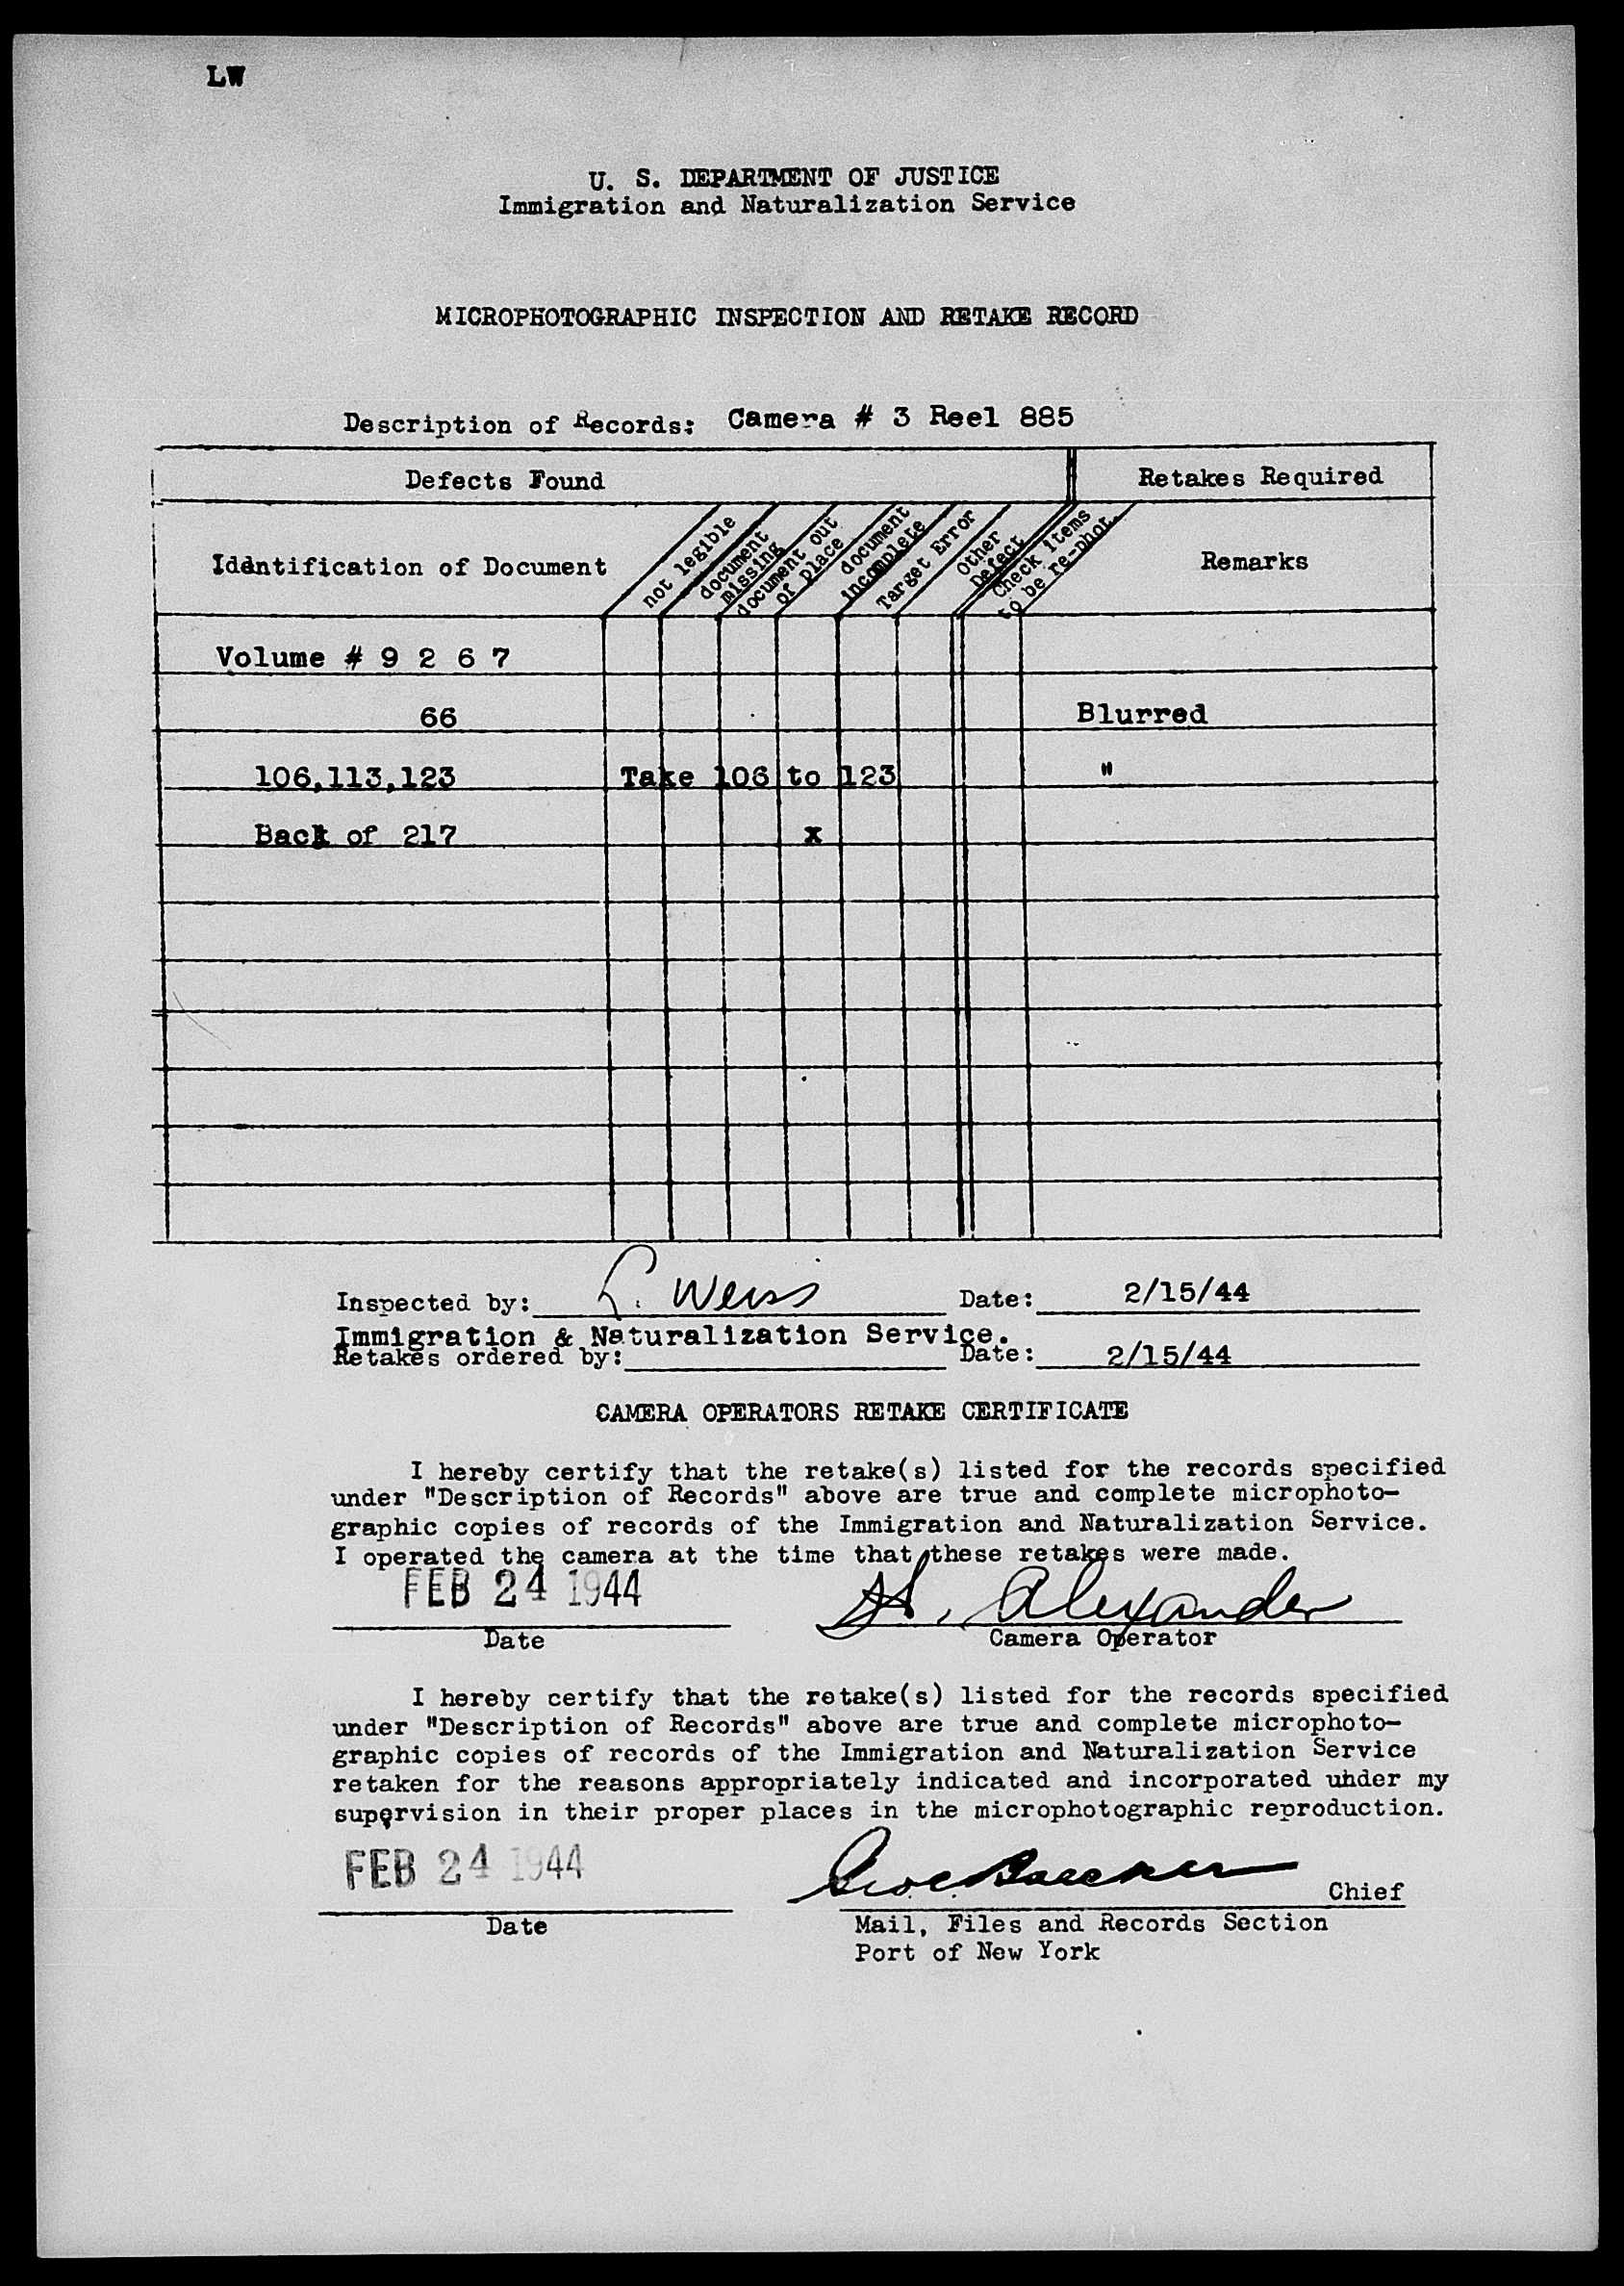 LW
U. S. DEPARTMENT OF JUSTICE
Immigration and Naturalization Service
MICROPHOTOGRAPHIC INSPECTION AND RETAKE RECORD
Description of Records: Camera # 3 Reel 885
Defects Found Retakes Required
Identification of Document not legible document missing document out of place document incomplete Target Error Other Defect Check items to be re-phot. Remarks
Volume # 9 2 6 7
66 Blurred
106,113,123 Take 106 to 123 "
Back of 217 x
Inspected by: L. Weiss Date: 2/15/44
Immigration & Naturalization Service.
Retakes ordered by: Date: 2/15/44
CAMERA OPERATORS RETAKE CERTIFICATE
I hereby certify that the retake(s) listed for the records specified
under "Description of Records" above are true and complete microphoto-
graphic copies of records of the Immigration and Naturalization Service.
I operated the camera at the time that these retakes were made.
FEB 24 1944 H. Alexander
Date Camera Operator
I hereby certify that the retake(s) listed for the records specified
under "Description of Records" above are true and complete microphoto-
graphic copies of records of the Immigration and Naturalization Service
retaken for the reasons appropriately indicated and incorporated uhder my
supervision in their proper places in the microphotographic reproduction.
FEB 24 1944 Chief
Date Mail, Files and Records Section
Port of New York